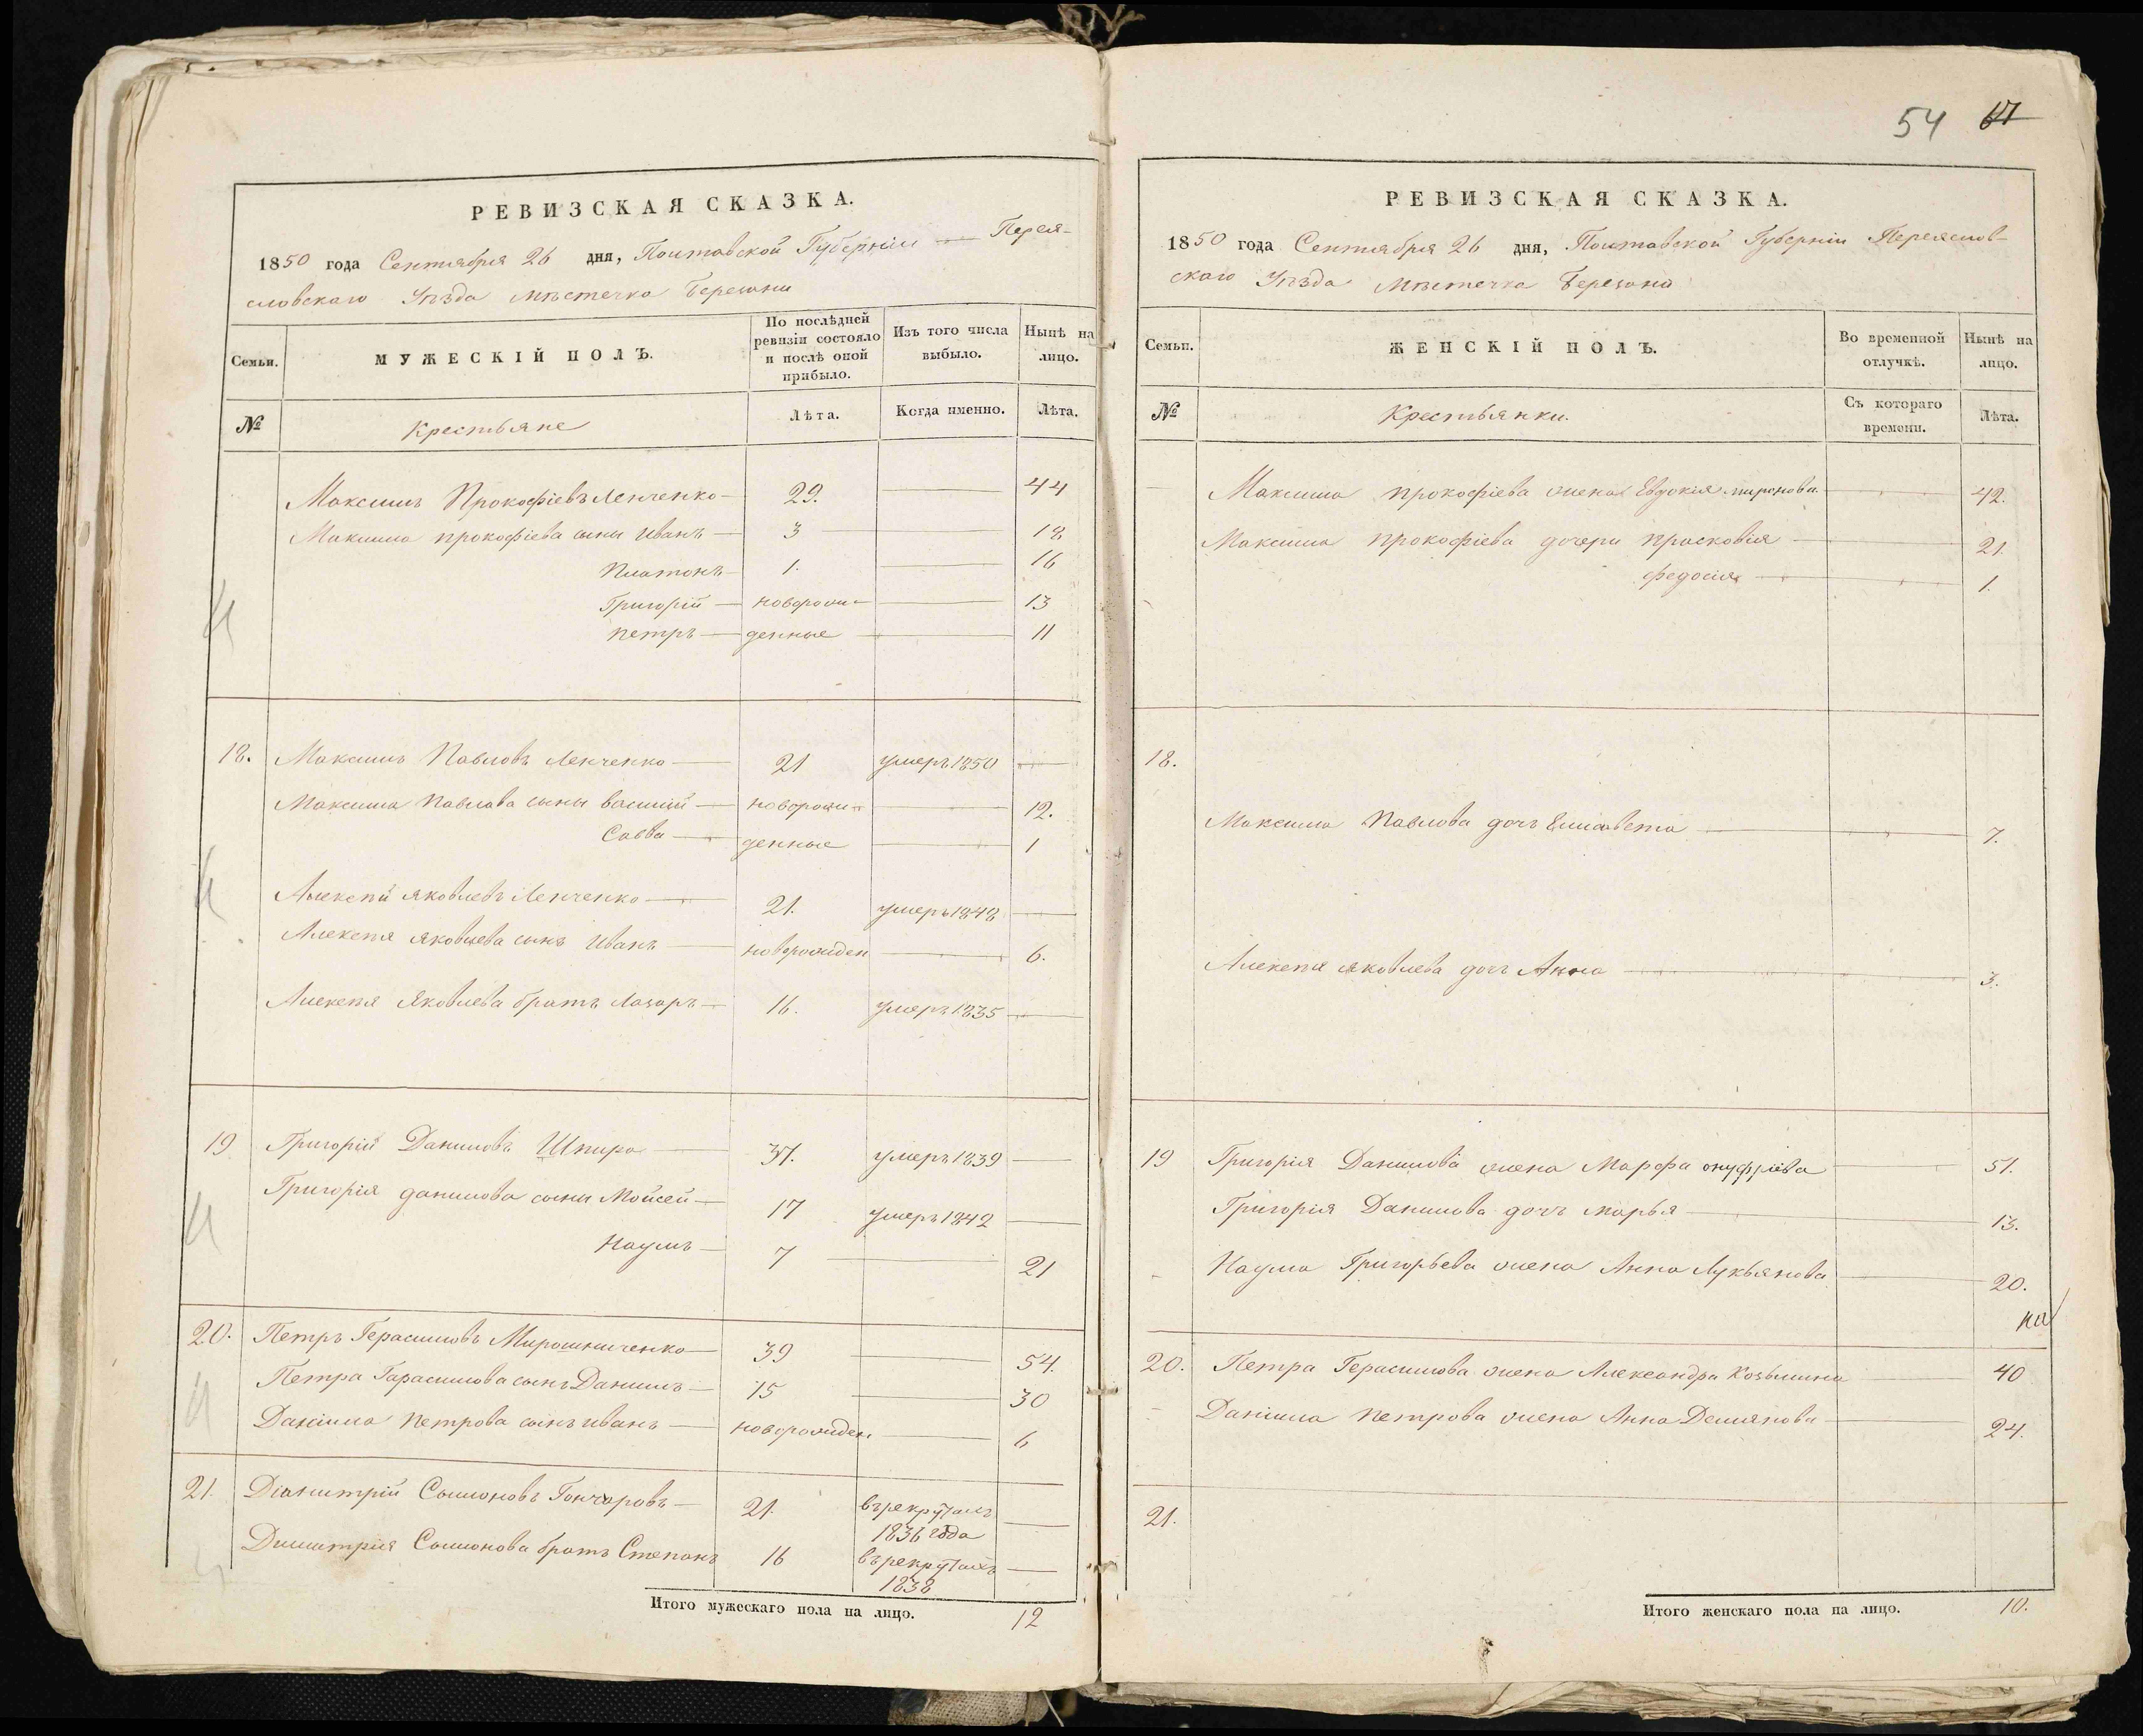 РЕВИЗСКАЯ СКАЗКА.
1850 года Сентября 26 дня, Полтавской Губерніи — Перея-
словскаго Уѣзда мѣстечка Березани
Семьи.
МУЖЕСКІЙ ПОЛЪ.
По послѣдней ревизіи состояло и послѣ оной прибыло.
Изъ того числа выбыло.
Нынѣ на лицо.
№
Крестьяне
Лѣта.
Когда именно.
Лѣта.
Максимъ Прокофіевъ Ленченко — 29. — 44
Максима прокофіева сыны Иванъ — 3 — 18
Платонъ — 1. — 16
Григорій — новорож- — 13
петръ — денные — 11
18. Максимъ Павловъ Ленченко — 21 умеръ 1850 —
Максима Павлова сыны василій — новорож- — 12.
Савва — денные — 1
Алексѣй яковлевъ Ленченко — 21. умеръ 1848 —
Алексѣя яковлева сынъ Иванъ — новорожден — 6.
Алексѣя Яковлева братъ Лазарь — 16. умеръ 1835 —
19 Григорій Даниловъ Шпира — 37. умеръ 1839 —
Григорія данилова сыны Мойсей — 17 умеръ 1842 —
Наумъ — 7 — 21
20. Петръ Герасимовъ Мирошниченко — 39 — 54.
Петра Гарасимова сынъ Данилъ — 15 — 30
Даніила петрова сынъ иванъ — новорожден — 6
21. Діамитрій Самоновъ Гончаровъ — 21. въ рекрутахъ —
1836 года
Димитрія Самонова братъ Степанъ 16 въ рекрутахъ —
1838
Итого мужескаго пола на лицо. 12
54 61
РЕВИЗСКАЯ СКАЗКА.
1850 года Сентября 26 дня, Полтавской Губерніи Переяслов-
скаго Уѣзда мѣстечка Березани
Семьи.
ЖЕНСКІЙ ПОЛЪ.
Во временной отлучкѣ.
Нынѣ на лицо.
№
Крестьянки.
Съ котораго времени.
Лѣта.
Максима прокофіева жена Евдокія миронова — 42.
Максима прокофіева дочери прасковія — 21.
федосія — 1.
18.
Максима Павлова дочь Елисавета — 7.
Алексѣя яковлева дочь Анна — 3.
19 Григорія Данилова жена Марфа онуфріева — 51.
Григорія Данилова дочь марья — 13.
Наума Григорьева жена Анна Лукьянова — 20.
20. Петра Герасимова жена Александра Козьмина — 40
Даніила петрова жена Анна Демянова — 24.
21.
Итого женскаго пола на лицо. 10.